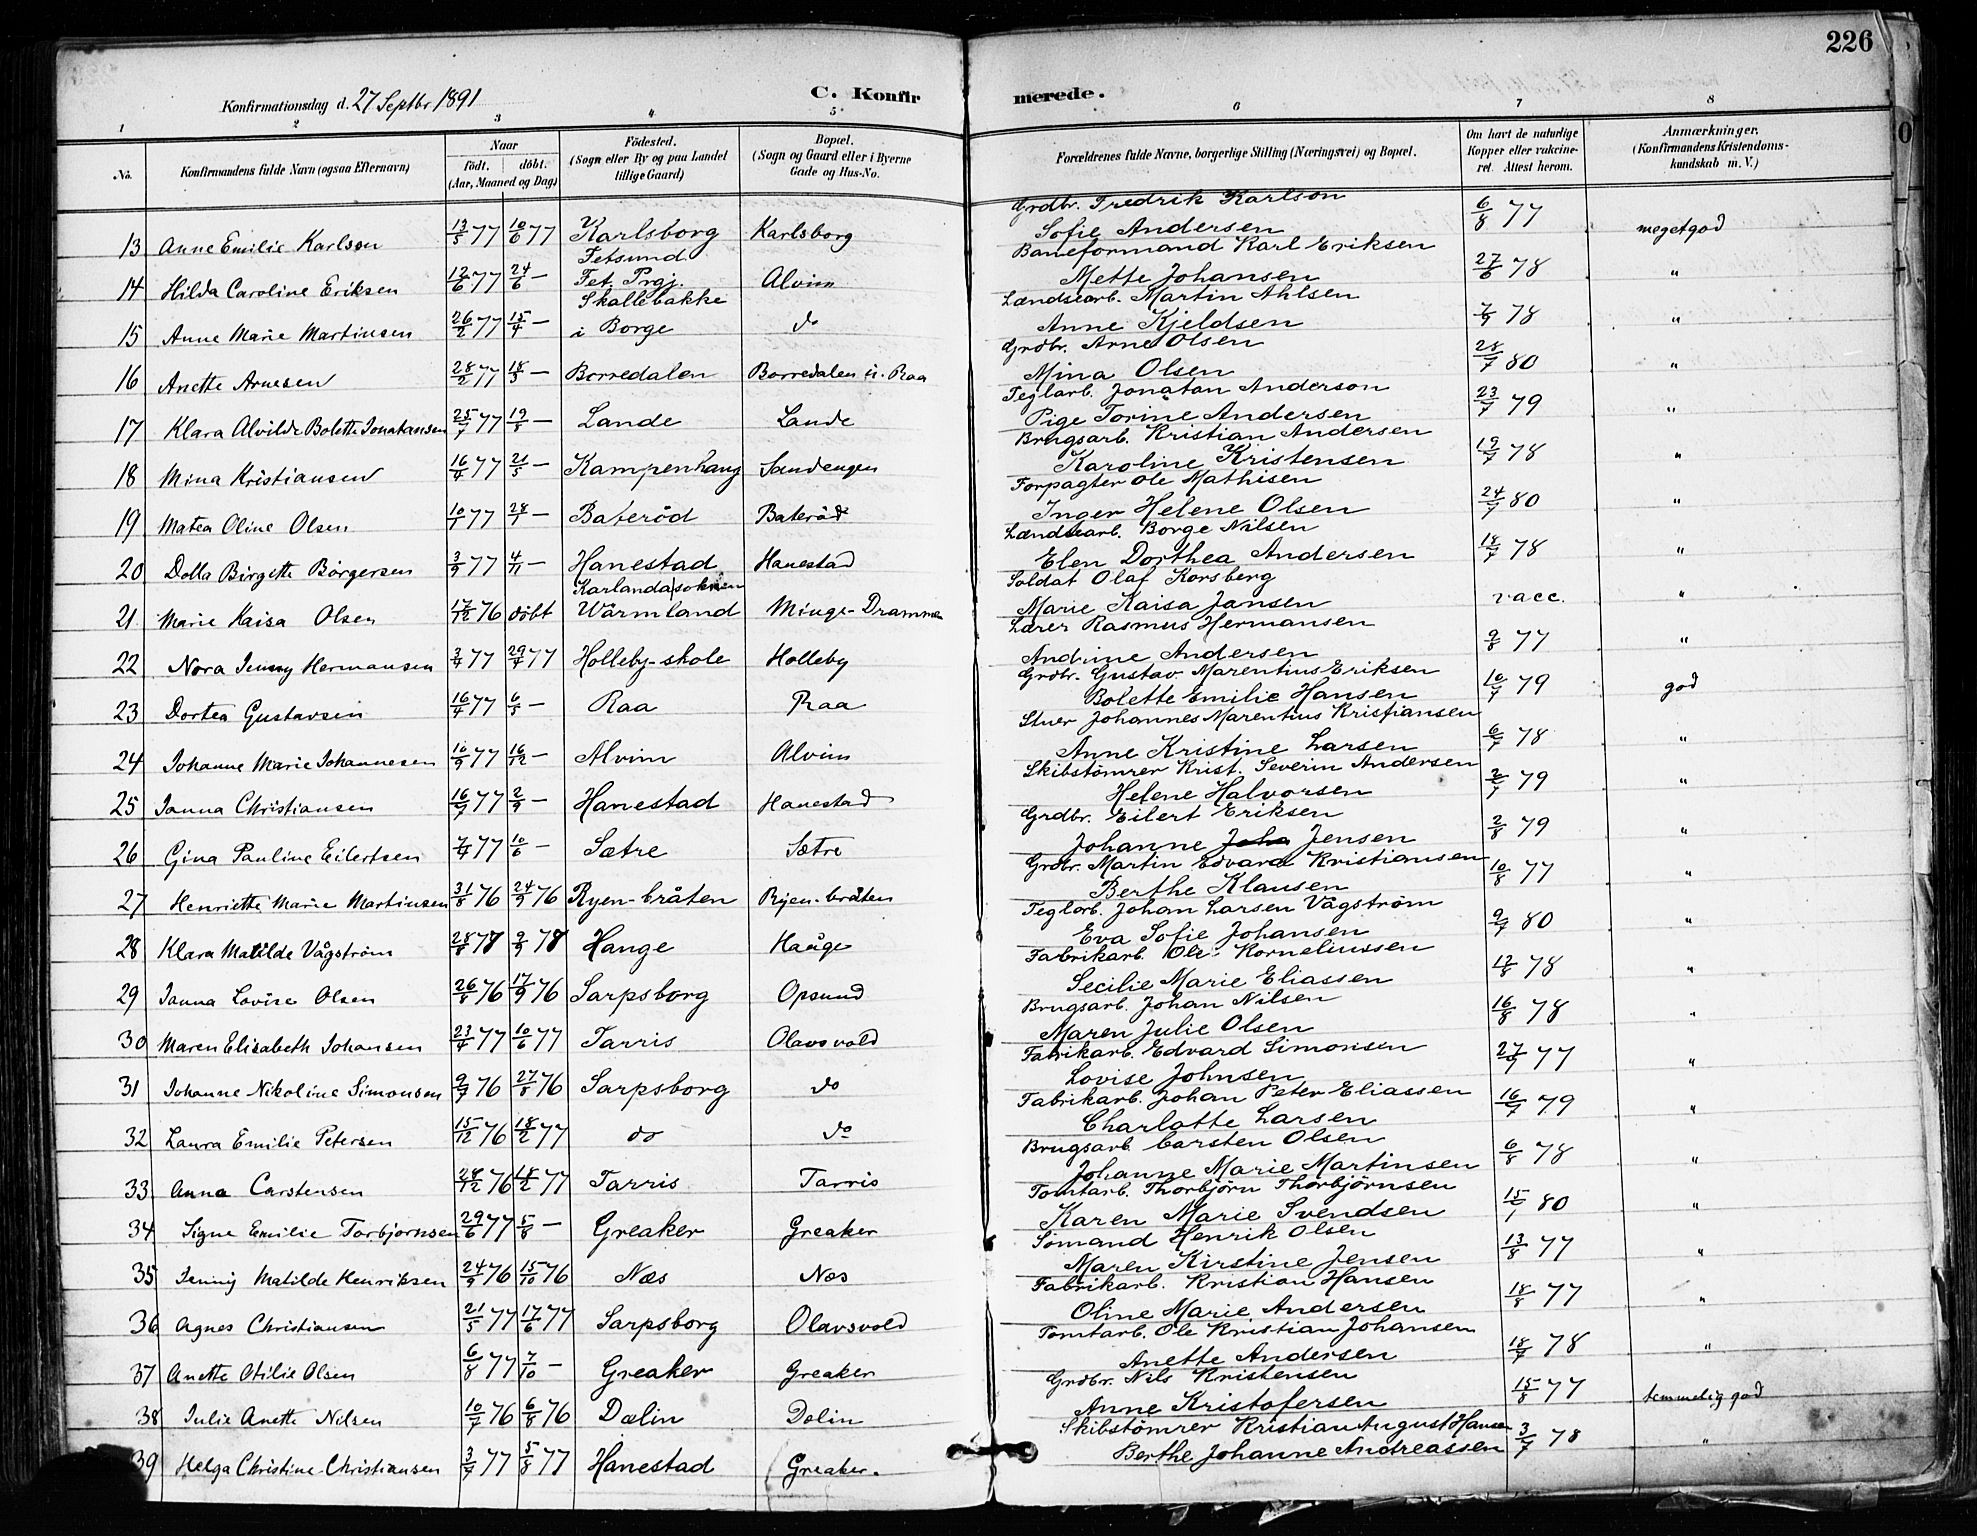 226
Konfirmationsdag d. 27 Septbr 1891
C. Konfirmerede.
1 2 3 4 5 6 7 8
No. Konfirmandens fulde Navn (ogsaa Efternavn) Naar födt. döbt. (Aar, Maaned og Dag) Födested. (Sogn eller By og paa Landet tillige Gaard) Bopæl. (Sogn og Gaard eller i Byerne Gade og Hus-No. Forældrenes fulde Navne, borgerlige Stilling (Næringsvei) og Bopæl. Om havt de naturlige Kopper eller vakcineret. Attest herom. Anmærkninger. (Konfirmandens Kristendomskundskab m. V.)
13 Anne Emilie Karlson 13/5 77 10/6 77 Karlsborg Karlsborg Grdbr. Fredrik Karlson Sofie Andersen 6/8 77 megetgod
14 Hilda Caroline Eriksen 12/6 77 24/6 — Fetsund Fet. Prgj. Alvim Baneformand Karl Eriksen Mette Johansen 27/6 78 "
15 Anne Marie Martinsen 26/2 77 15/4 — Skallebakke i Borge do Lændsearb. Martin Ahlsen Anne Kjeldsen 7/9 78 "
16 Anette Arnesen 28/2 77 18/3 — Borredalen Borredalen u. Raa Grdbr. Arne Olsen Mina Olsen 28/7 80 "
17 Klara Alvilde Bolette Jonatansen 25/7 77 19/8 — Lande Lande Teglarb. Jonatan Anderson Pige Torine Andersen 23/7 79 "
18 Mina Kristiansen 16/4 77 21/5 — Kampenhaug Sandengen Brugsarb. Kristian Andersen Karoline Kristensen 19/7 78 "
19 Matea Oline Olsen 10/1 77 28/1 — Bateröd Bateröd Forpagter Ole Mathisen Inger Helene Olsen 24/7 80 "
20 Dolla Birgitte Börgersen 3/9 77 4/11 — Hanestad Hanestad Lændsearb. Borge Nilsen Elen Dorthea Andersen 18/7 78 "
21 Marie Kaisa Olsen 17/12 76 döbt Karlandasoknen Wärmland Minge-Drammen Soldat Olaf Korsberg Marie Kaisa Jansen vacc. "
22 Nora Jenny Hermansen 3/4 77 29/4 77 Holleby-skole Holleby Lærer Rasmus Hermansen Andrine Andersen 9/8 77 "
23 Dortea Gustavsen 16/4 77 6/5 — Raa Raa Grdbr. Gustav Marentius Eriksen Bolette Emilie Hansen 10/7 79 god
24 Johanne Marie Johannesen 10/9 77 16/12 — Alvim Alvim Stuer Johannes Marentius Kristiansen Anne Kristine Larsen 6/7 78 "
25 Janna Christiansen 16/7 77 2/9 — Hanestad Hanestad Skibstömrer Krist. Severin Andersen Helene Halvorsen 2/7 79 "
26 Gina Pauline Eilertsen 7/4 77 10/6 — Sætre Sætre Grdbr. Eilert Eriksen Johanne Joha Jensen 2/8 79 "
27 Henriette Marie Martinsen 31/8 76 24/9 76 Ryen-bråten Ryen-bråten Grdbr. Martin Edvard Kristiansen Berthe Klausen 10/8 77 "
28 Klara Matilde Vågström 28/8 77 9/9 77 Hauge Hauge Teglarb. Johan Larsen Vågström Eva Sofie Johansen 9/7 80 "
29 Janna Lovise Olsen 26/8 76 17/9 76 Sarpsborg Opsund Fabrikarb. Ole Korneliussen Secilie Marie Eliassen 13/8 78 "
30 Maren Elisabeth Johansen 23/4 77 10/6 77 Tarris Olavsvold Brugsarb. Johan Nilsen Maren Julie Olsen 16/8 78 "
31 Johanne Nikoline Simonsen 9/7 76 27/8 76 Sarpsborg do Fabrikarb. Edvard Simonsen Lovise Johnsen 27/9 77 "
32 Laura Emilie Petersen 15/12 76 18/2 77 do do Fabrikarb. Johan Peter Eliassen Charlotte Larsen 16/7 79 "
33 Anna Carstensen 28/12 76 18/2 77 Tarris Tarris Brugsarb. Carsten Olsen Johanne Marie Martinsen 6/8 78 "
34 Signe Emilie Torbjørnsen 29/6 77 5/8 — Greaker Greaker Tomtarb. Thorbjörn Thorbjörnsen Karen Marie Svendsen 15/1 80 "
35 Jenny Matilde Henriksen 24/9 76 15/10 76 Næs Næs Sömand Henrik Olsen Maren Kirstine Jensen 13/8 77 "
36 Agnes Christiansen 21/5 77 17/6 77 Sarpsborg Olavsvold Fabrikarb. Kristian Hansen Oline Marie Andersen 18/8 77 "
37 Anette Otilie Olsen 6/8 77 7/10 — Greaker Greaker Tomtarb. Ole Kristian Johansen Anette Andersen 18/7 78 "
38 Julie Anette Nilsen 10/7 76 6/8 76 Dælin Dælin Grdbr. Nils Kristensen Anne Kristofersen 15/8 77 temmelig god
39 Helga Christine Christiansen 3/7 77 5/8 77 Hanestad Greaker. Skibstömrer Kristian August Hansen Berthe Johanne Andreassen 3/7 78 "